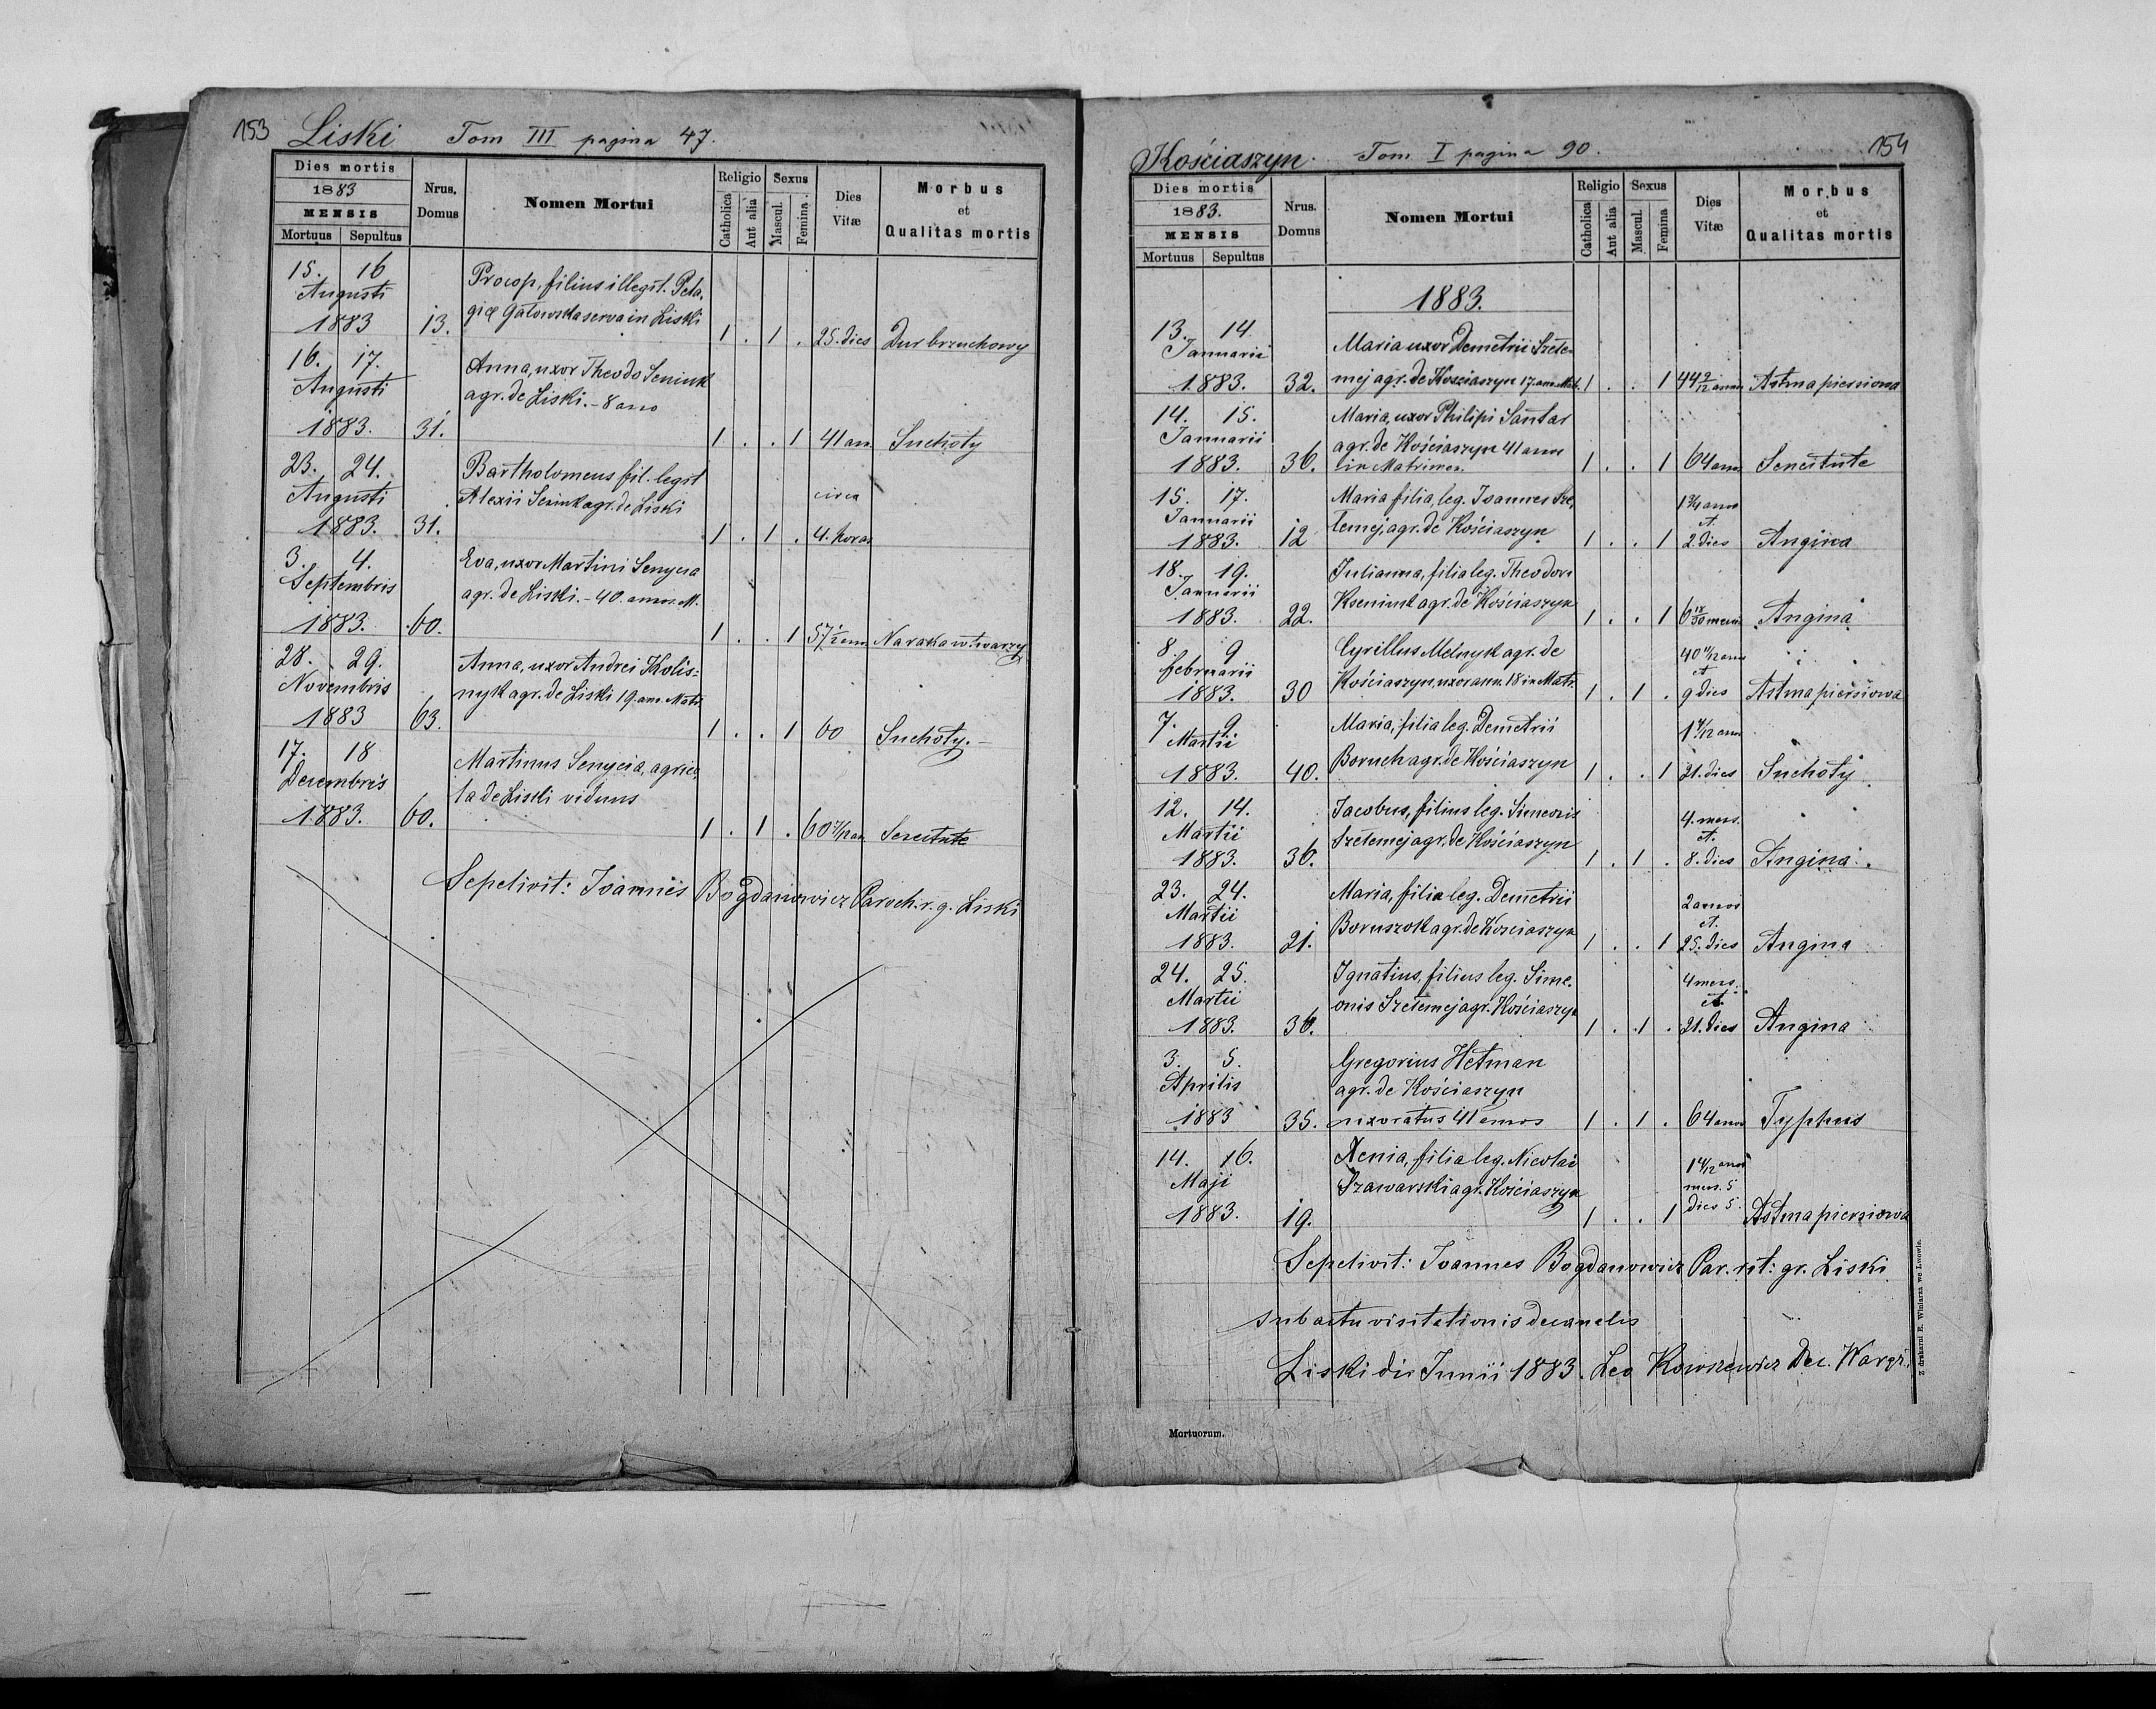 153 Liski Tom III pagina 47.
Dies mortis
1883
MENSIS
Mortuus Sepultus
Nrus. Domus
Nomen Mortui
Religio
Catholica Aut alia
Sexus
Mascul. Femina
Dies Vitæ
Morbus
et
Qualitas mortis
15. 16
Augusti
1883 13.
Procop, filius illegit. Pela,
giæ Gałowska serva in Liski
1 . 1 . 25. dies Dur brzuchowy
16. 17.
Augusti
1883. 31.
Anna, uxor Theodo Seniuk
agr. de Liski. - 8 ano
1 . . 1 41 an. Suchoty
23. 24.
Augusti
1883. 31.
Bartholomeus fil. legit
Alexii Seniuk agr. de Liski
1 . 1 . circa
4. horas
3. 4.
Septembris
1883. 60.
Eva, uxor Martini Senycia
agr. de Liski. - 40. annos. M.
1 . . 1 57 1/2 ann Na raka w twarzy
28. 29.
Novembris
1883 63.
Anna, uxor Andrei Kolis=
nyk agr. de Liski 19. ann. Matr.
1 . . 1 60 Suchoty. -
17. 18
Decembris
1883. 60.
Martinus Senycia, agrico,
la de Liski viduus
1 . 1 . 60 7/12 an. Senectute
Sepelivit: Joannes Bogdanowicz Paroch. r. g. Liski
Kościaszyn. Tom. I pagina 90. 154
Dies mortis
1883.
MENSIS
Mortuus Sepultus
Nrus. Domus
Nomen Mortui
Religio
Catholica Aut alia
Sexus
Mascul. Femina
Dies Vitæ
Morbus
et
Qualitas mortis
1883.
13. 14.
Januarii
1883. 32.
Maria uxor Demetrii Szete=
mej agr. de Kościaszyn 17. ann. Mat.
1 . . 1 44 9/12 ann Astma piersiowa
14. 15.
Januarii
1883. 36.
Maria, uxor Philipi Santar
agr. de Kościaszyn 41 ann
in Matrimon.
1 . . 1 64 ann. Senectute
15. 17.
Januarii
1883. 12
Maria filia, leg. Joannes Sze,
temej, agr. de Kościaszyn
1 . . 1 1 3/4 anos
et.
2. dies Angina
18. 19.
Januarii
1883. 22.
Julianna, filia leg. Theodori
Kseniuk agr. de Kościaszyn
1 . . 1 6 mens. Angina
8. 9
februarii
1883. 30
Cyrillus Melnyk agr. de
Kościaszyn, uxor ann. 18 in Matr.
1 . 1 . 40 11/12 ann
et
9 dies Astma piersiowa
7. 9.
Martii
1883. 40.
Maria, filia leg. Demetrii
Boruch agr. de Kościaszyn
1 . . 1 ann
21. dies Suchoty
12. 14.
Martii
1883. 36.
Jacobus, filius leg. Simeonis
Szetemej agr. de Kościaszyn
1 . 1 . 4. mens.
et.
8. dies Angina
23. 24.
Martii
1883. 21.
Maria, filia leg. Demetrii
Boruszok agr. de Kościaszyn
1 . . 1 2 annos
et.
25. dies Angina
24. 25.
Martii
1883. 36.
Ignatius, filius leg. Sime.
onis Szetemej agr. Kościaszyn
1 . 1 . 4 mens.
et.
21. dies Angina
3. 5.
Aprilis
1883 35.
Gregorius Hetman
agr. de Kościaszyn
uxoratus 41 annos
1 . 1 . 64 annos Typhus
14. 16.
Maji
1883. 19.
Xenia, filia leg. Nicolai
Szawarski agr. Kościaszyn
1 . . 1 anos
mens. 5
dies 5. Astma piersiowa
Sepelivit: Joannes Bogdanowicz Par. rit: gr. Liski
sub actu visitationis decanalis
Liski die Junii 1883. Leo Dec. Waręż.
Mortuorum.
Z drukarni E. Winiarza we Lwowie.